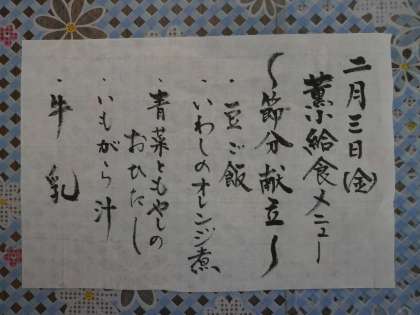 二月三日(金)
薫小給食メニュー
〜節分献立〜
・豆ご飯
・いわしのオレンジ煮
・青菜ともやしの
おひたし
・いもがら汁
・牛乳